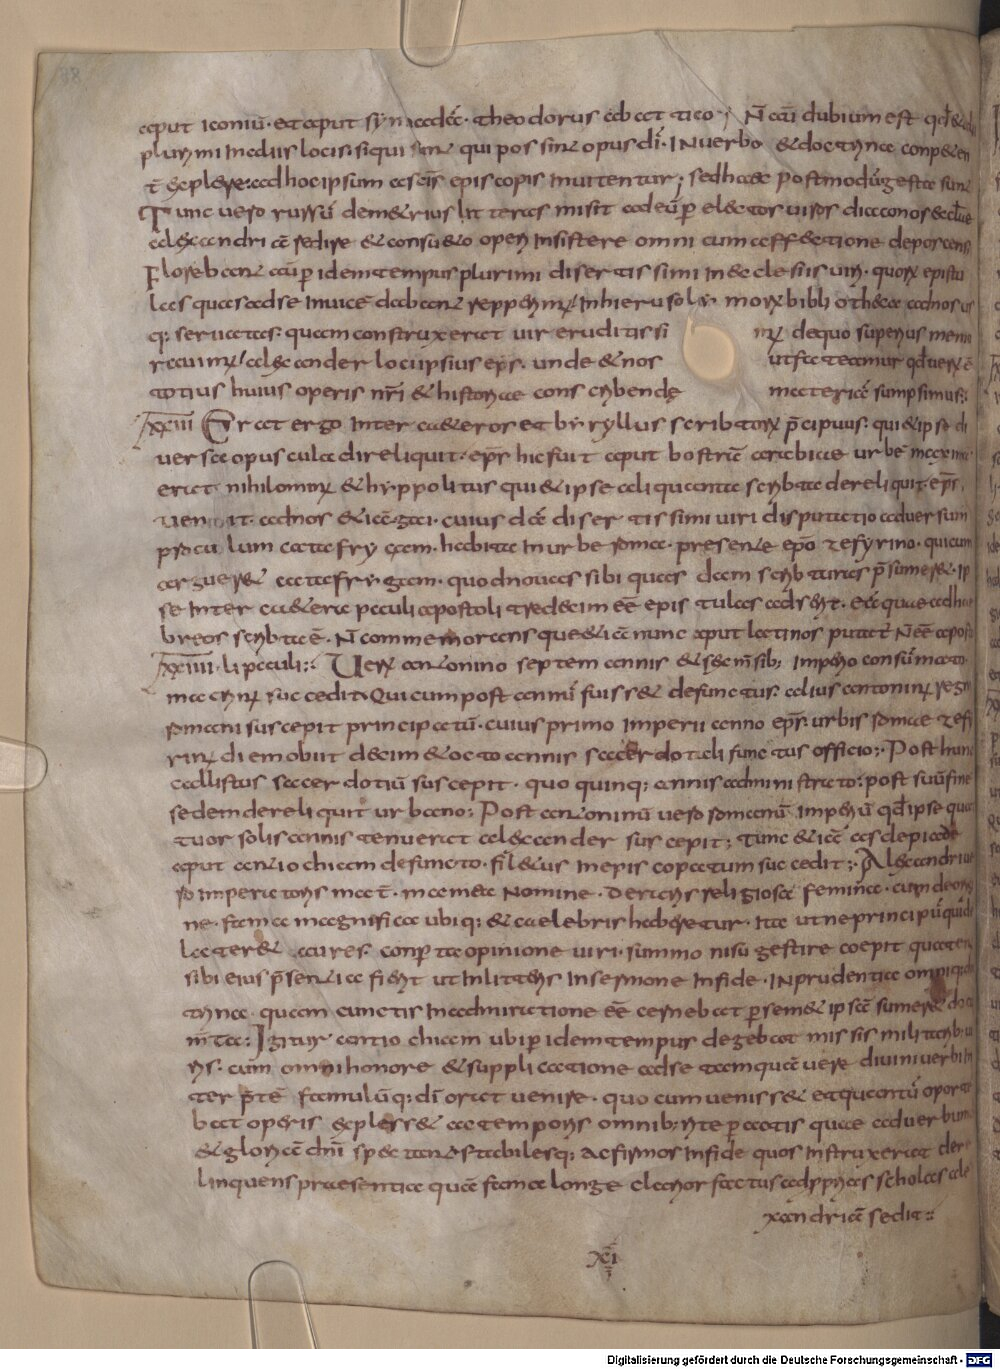 88
aput iconiũ· et aput synnadã· theodorus ab attico; Nã cũ dubium est qd̃ & alii
plurimi in aliis locis· siqui sint qui possint opus dĩ· in uerbo & doctrina conpet en
t̃ explere: ad hoc ipsum a scĩs episcopis inuitentur; sed haec postmodũ gesta sunt
Tunc uero rursũ demetrius litteras misit ad eũ p electos uiros diaconos
alexandriã redire & consueto operi insistere omni cum affectione deposcens
Florebant aũ p idem tempus plurimi disertissimi in aeclesiis uiri· quorũ epistu
las quas ad se inuicẽ dabant repperimus in hierusolymorũ bibliotheca ad nos us
q; seruatas· quam construxerat uir eruditissi mus de quo superius memo
rauimus alexander loci ipsius eps̃· unde & nos ut fateamur qd̃ uerũ ẽ
totius huius operis nr̃i & historiae conscribendę materiã sumpsimus;
xxiii Erat ergo inter caeteros et byryllus scribtorũ p̃cipuus· qui & ipse di
uersa opuscula direliquit· eps̃ hic fuit aput bostrã arabiae urbẽ maxima·
erat nihilominus & hyppolitus qui & ipse aliquanta scribta dereliquit eps̃·
uenit ad nos & iã gai· cuius dã disertissimi uiri disputatio aduersum
proculum catafrygam· habita in urbe roma· presente epõ zefyrino· qui cum
arguere catafrygam· quod nouas sibi quasdam scribturas p̃sumere· ip
se inter caetera pauli apostoli tredecim eẽ epistulas adserit· eã quae ad he
breos scribta ẽ· Nõ commemorans quę & iã nunc aput latinos putat' nõ eẽ aposto
xxiiii li pauli: Uerũ antonino septem annis & sex m̃sib; imperio consũmato·
macrinus succedit· Qui cum post annũ fuisset defunctus· alius antoninus regni
romani suscepit principatũ· cuius primo imperii anno eps̃· urbis romae zefi
rinus diem obiit decim & octo annis sacerdotali functus officio; Post hunc
callistus sacerdotiũ suscepit· quo quinq; annis administrato: post suũ fine
sedem dereliquit urbano: Post antoninũ uero romanũ imperiũ qd̃ ipse qua
tuor solis annis tenuerat alexander suscepit; Tunc & iã asclepiade
aput antiochiam defuncto· filetus in episcopatum succedit; Alexandri ue
ro imperatoris mat̃· mamea nomine· d erat his religiosa femina· cum de orige
ne· fama magnificae ubiq; & caelebris haberetur· ita ut ne principũ quidẽ
lateret aures· conp̃ta opinione uiri· summo nisu gestire coepit quaten
sibi eius p̃sentia fierit ut in litteris in sermone in fide· in prudentia
trina· quam cunctis in admiratione eẽ cernebat p semet ipsã sumere do
m̃ta: Igitur antiochiam ubi p idem tempus degebat missis militarib· ui
ris· cum omni honore & supplicatione ad se tamquã uere diuini uerbi mi
ter p̃tẽ famulũq; dĩ orat uenire· quo cum uenisset et quantũ oporte
bat operis explesset ac temporis omnib; rite p actis quae ad uerbum
& gloriã dn̄i spectant & stabilesq; ac firmos in fide quos instruxerat dere
linquens praesentia quã fama longe clarior factus ad pprias scholas ale
xandriã sedit:
xi
Digitalisierung gefördert durch die Deutsche Forschungsgemeinschaft - DFG